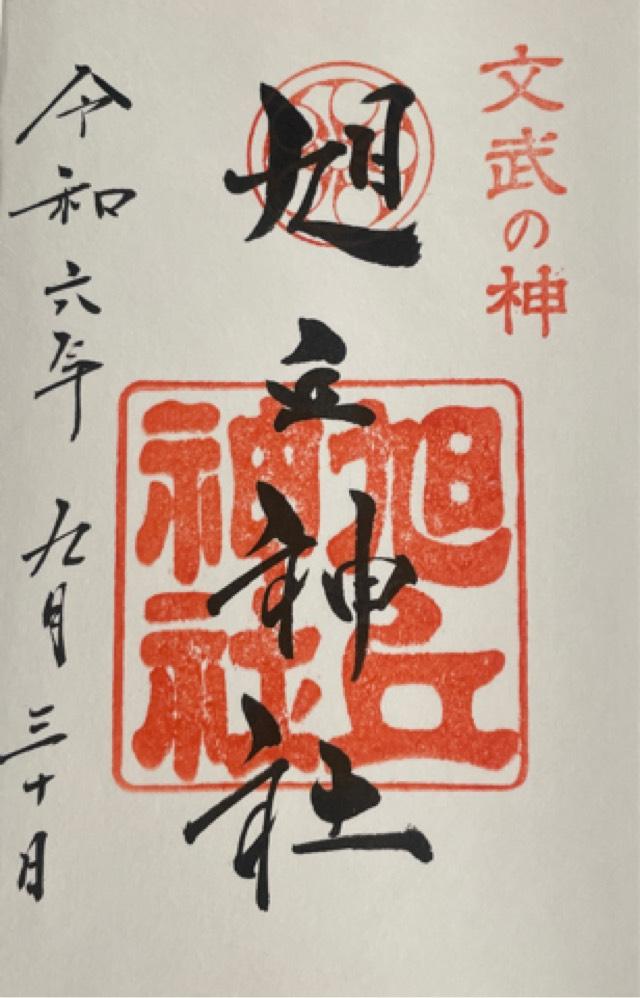 文武の神
旭立神社
旭立
神社
令和六年九月三十日